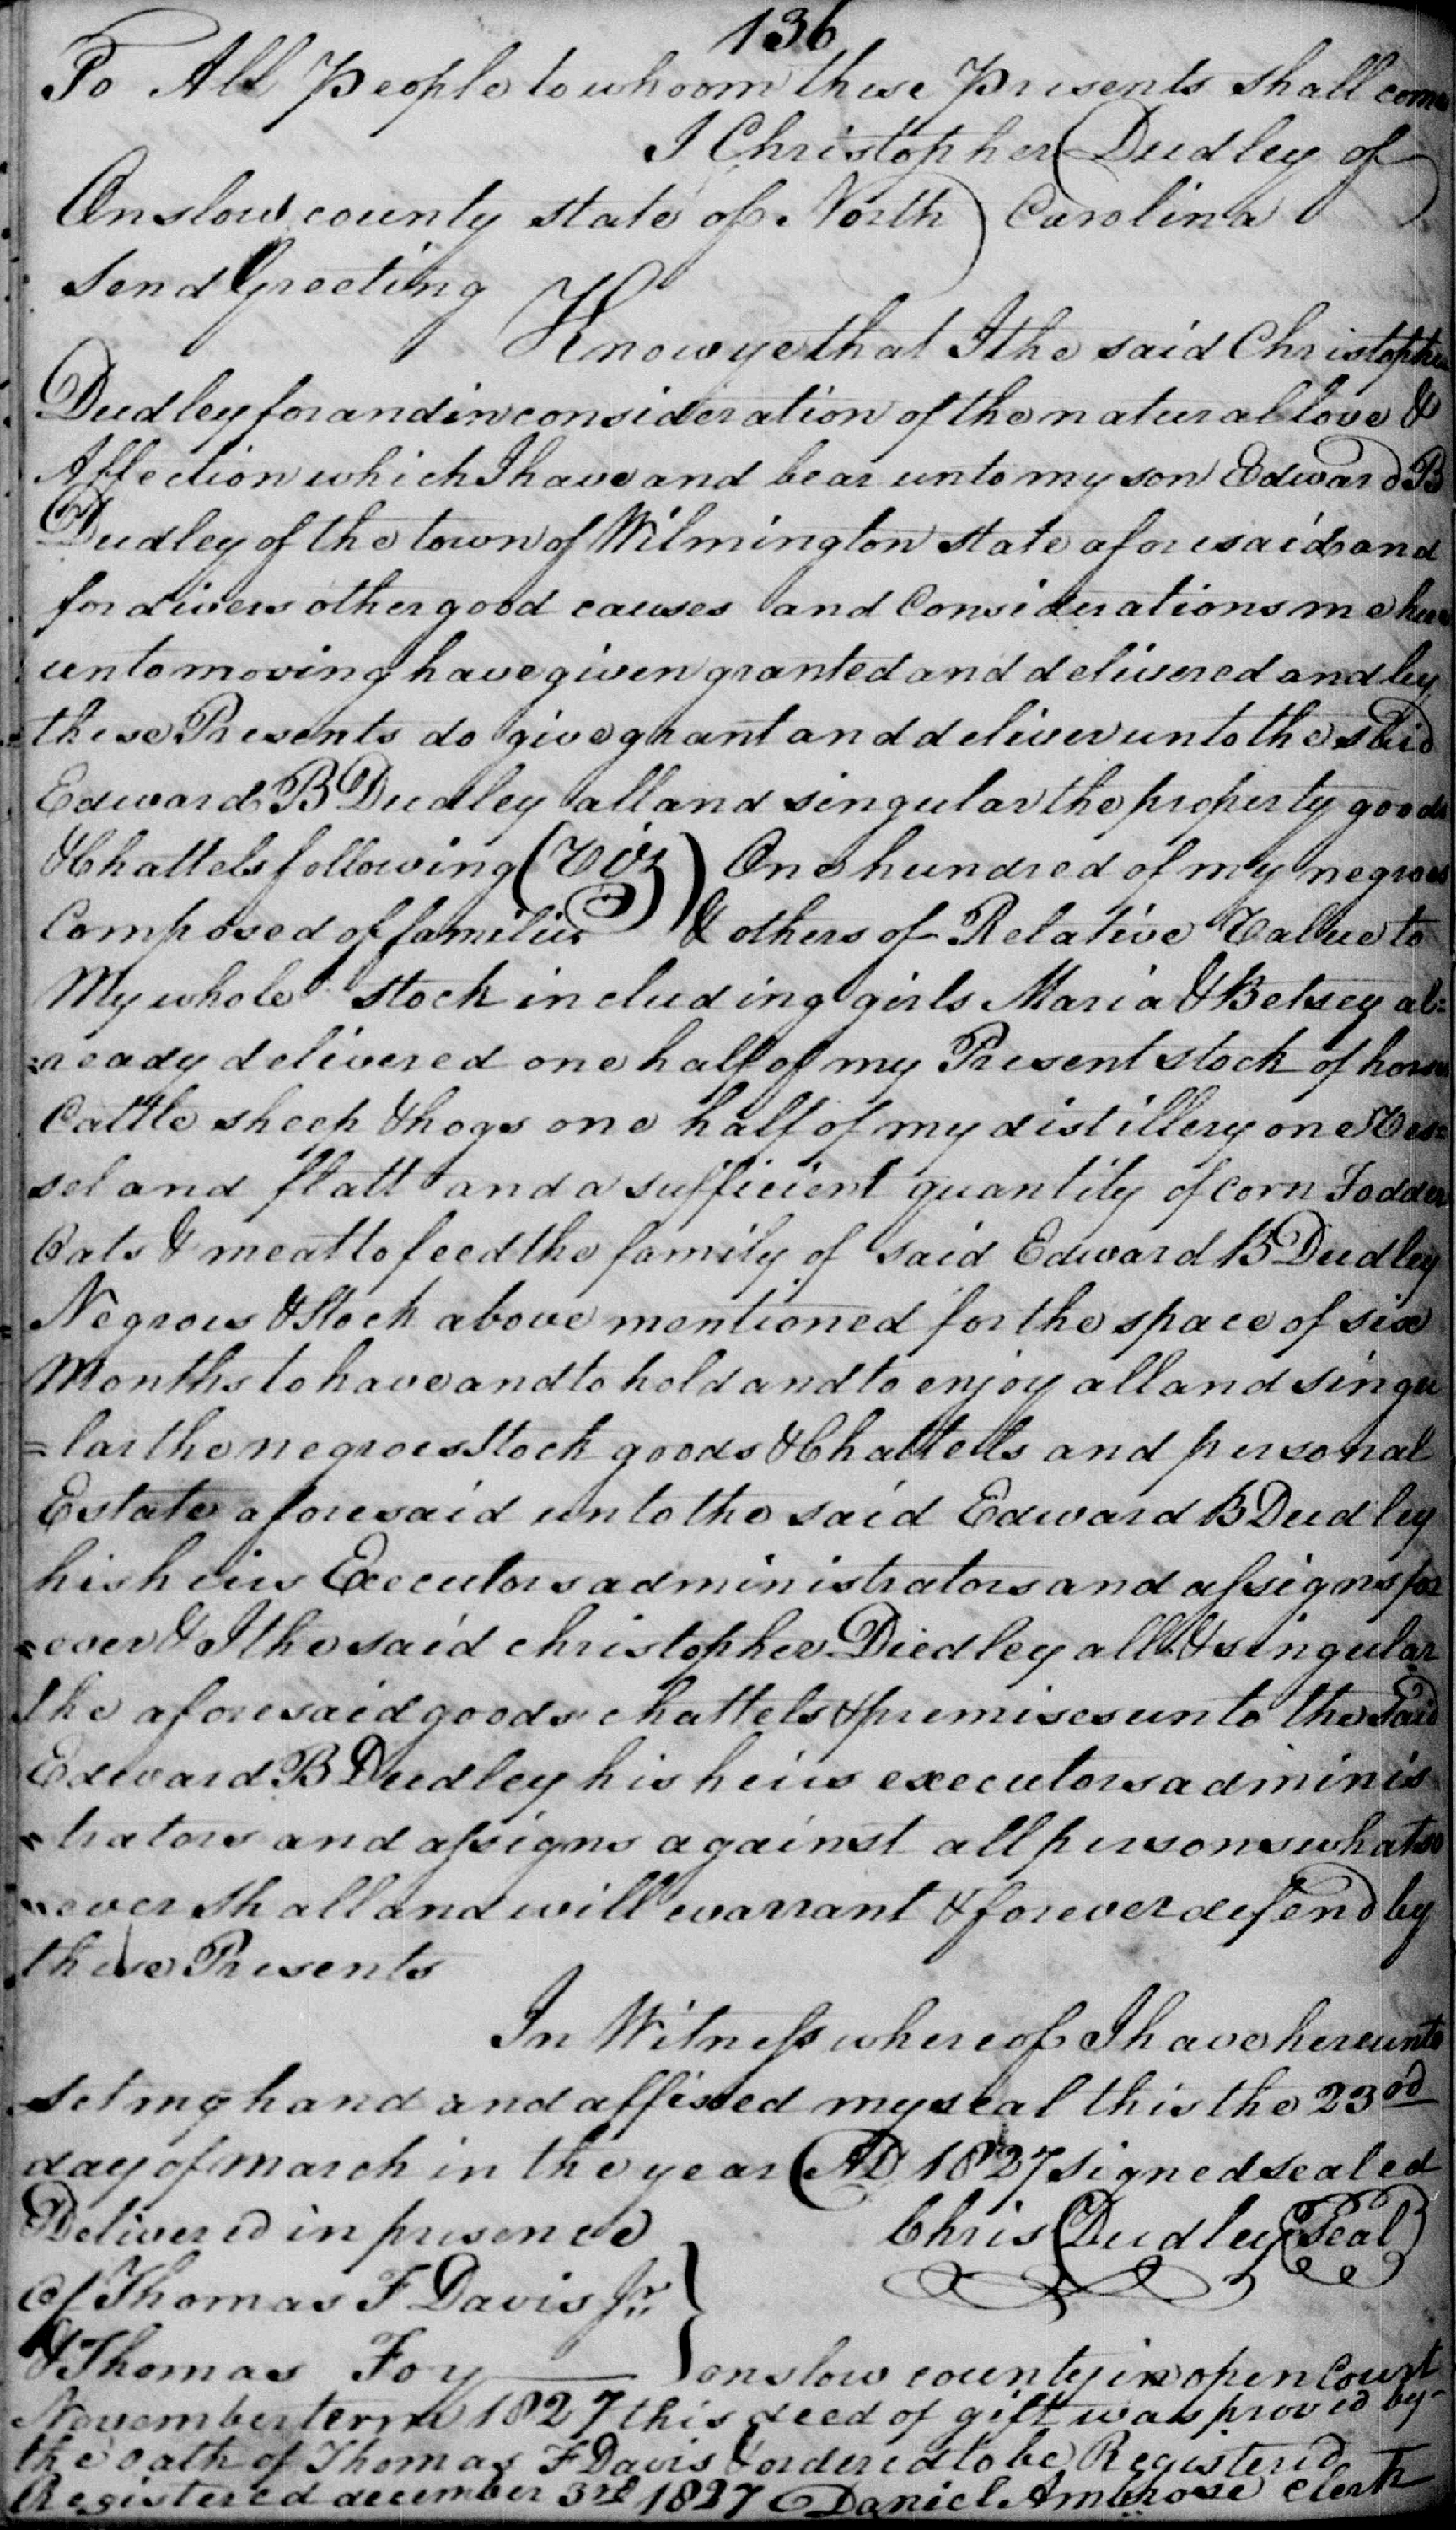 136
To All People to whoom these Presents shall come
I Christopher Dudley of
Onslow county state of North Carolina
send Greeting
Know ye that I the said Christopher
Dudley for and in consideration of the natural love &
Affection which I have and bear unto my son Edward B
Dudley of the town of Wilmington state aforesaid and
for divers other good causes and Considerations me here
unto moving have given granted and delivered and by
these Presents do give grant and deliver unto the said
Edward B Dudley all and singular the property goods
& Chattels following (Viz) One hundred of my negroes
Composed of families & others of Relative Value to
My whole stock including girls Maria & Betsey al=
=ready delivered one half of my Present stock of horses
Cattle sheep & hogs one half of my distillery one Ves=
sel and flatt and a sufficient quantity of corn Fodder
Oats & meat to feed the family of said Edward B Dudley
Negroes & Stock above mentioned for the space of six
Months to have and to hold and to enjoy all and singu
=lar the negroes Stock goods & Chattells and personal
Estate aforesaid unto the said Edward B Dudley
his heirs Executors administrators and assigns for
=ever & I the said christopher Dudley all & singular
the aforesaid goods chattels & premises unto the Said
Edward B Dudley his heirs executors adminis
=trators and assigns against all persons whatso
=ever shall and will warrant & forever defend by
these Presents
In Witness whereof I have hereunto
set my hand and affixed my seal this the 23rd
day of march in the year AD 1827 signed sealed
Delivered in presence Chris Dudley (Seal)
of Thomas F Davis Jr
& Thomas Foy onslow county in open Court
November term 1827 this deed of gift was proved by
the oath of Thomas F Davis & ordered to be Registered
Registered december 3rd 1827 Daniel Ambrose clerk